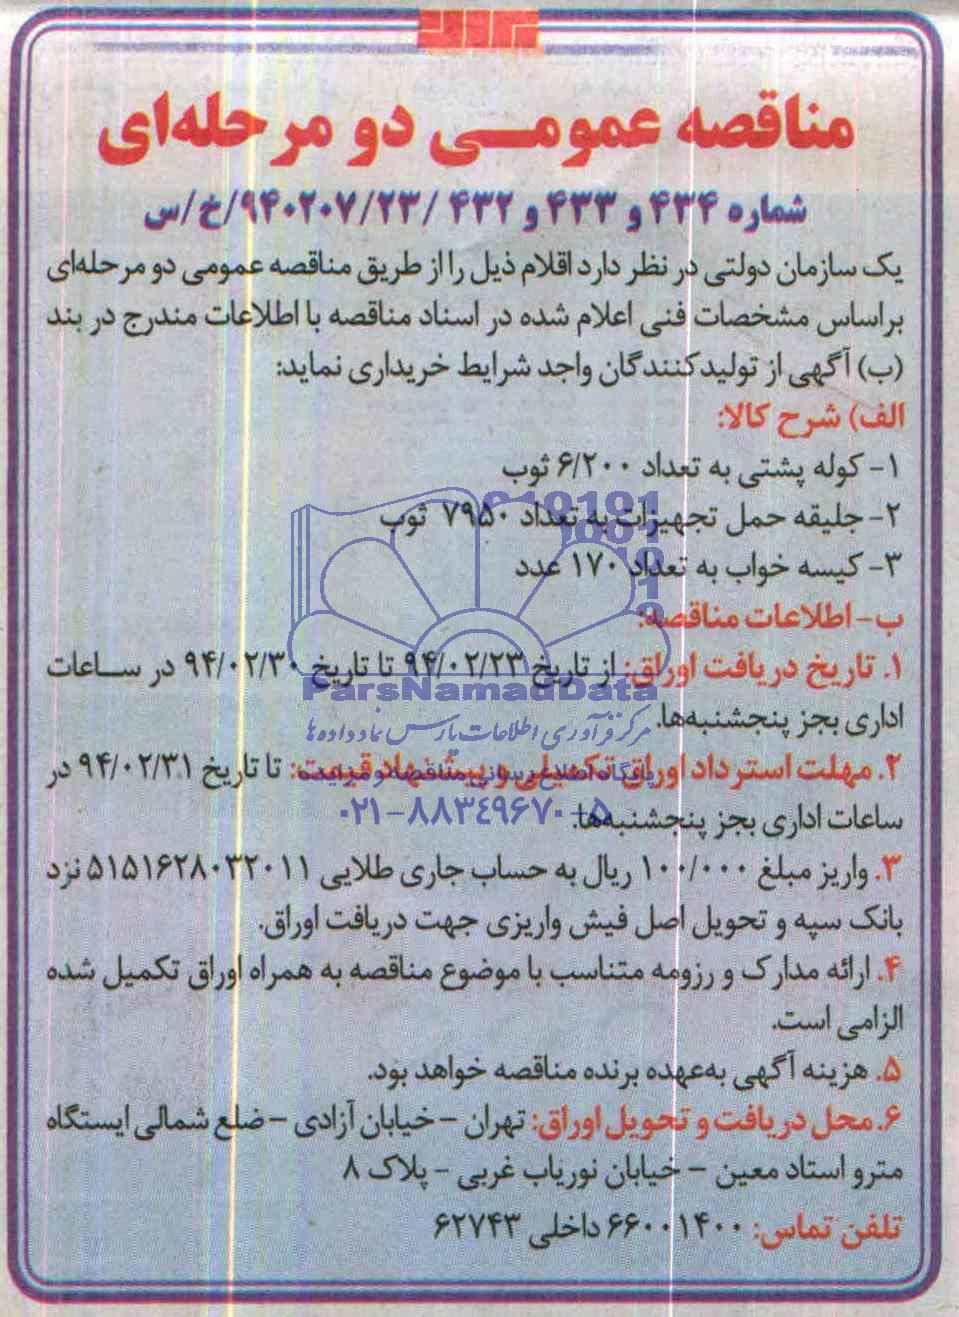 مناقصه عمومی دو مرحله‌ای
شماره ۴۳۴ و ۴۳۳ و ۴۳۲ /۹۴۰۲۰۷/۲۳/خ/س
یک سازمان دولتی در نظر دارد اقلام ذیل را از طریق مناقصه عمومی دو مرحله‌ای
براساس مشخصات فنی اعلام شده در اسناد مناقصه با اطلاعات مندرج در بند
(ب) آگهی از تولیدکنندگان واجد شرایط خریداری نماید:
الف) شرح کالا:
۱- کوله پشتی به تعداد ۶/۲۰۰ ثوب
۲- جلیقه حمل تجهیزات به تعداد ۷۹۵۰ ثوب
۳- کیسه خواب به تعداد ۱۷۰ عدد
ب- اطلاعات مناقصه:
۱. تاریخ دریافت اوراق: از تاریخ ۹۴/۰۲/۲۳ تا تاریخ ۹۴/۰۲/۳۰ در ساعات
ParsNamadData
اداری بجز پنجشنبه‌ها.
مرکز فرآوری اطلاعات پارس نماد داده‌ها
۲. مهلت استرداد اوراق تکمیلی و پیشنهاد قیمت: تا تاریخ ۹۴/۰۲/۳۱ در
پایگاه اطلاع رسانی مناقصه و مزایده
ساعات اداری بجز پنجشنبه‌ها.
۰۲۱-۸۸۳۴۹۶۷۰-۵
۳. واریز مبلغ ۱۰۰/۰۰۰ ریال به حساب جاری طلایی ۵۱۵۱۶۲۸۰۳۲۰۱۱ نزد
بانک سپه و تحویل اصل فیش واریزی جهت دریافت اوراق.
۴. ارائه مدارک و رزومه متناسب با موضوع مناقصه به همراه اوراق تکمیل شده
الزامی است.
۵. هزینه آگهی به‌عهده برنده مناقصه خواهد بود.
۶. محل دریافت و تحویل اوراق: تهران - خیابان آزادی - ضلع شمالی ایستگاه
مترو استاد معین - خیابان نوریاب غربی - پلاک ۸
تلفن تماس: ۶۶۰۰۱۴۰۰ داخلی ۶۲۷۴۳